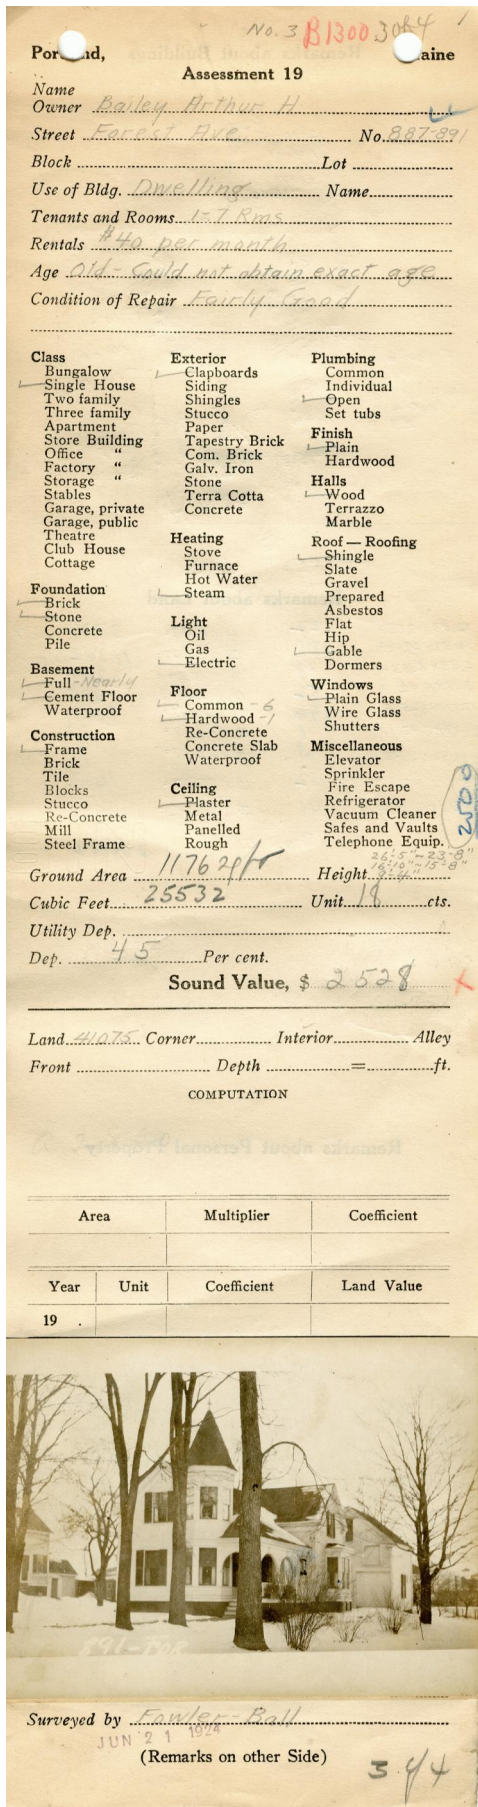 No. 3 B1300 3 of 4
Portland, Maine
Assessment 19
Name
Owner Bailey Arthur H
Street Forest Ave No. 887-891
Block Lot
Use of Bldg. Dwelling Name
Tenants and Rooms 1-7 Rms
Rentals $40 per month
Age Old - Could not obtain exact age
Condition of Repair Fairly Good
Class
Bungalow
Single House
Two family
Three family
Apartment
Store Building
Office "
Factory "
Storage "
Stables
Garage, private
Garage, public
Theatre
Club House
Cottage
Foundation
Brick
Stone
Concrete
Pile
Basement
Full - Nearly
Cement Floor
Waterproof
Construction
Frame
Brick
Tile
Blocks
Stucco
Re-Concrete
Mill
Steel Frame
Exterior
Clapboards
Siding
Shingles
Stucco
Paper
Tapestry Brick
Com. Brick
Galv. Iron
Stone
Terra Cotta
Concrete
Heating
Stove
Furnace
Hot Water
Steam
Light
Oil
Gas
Electric
Floor
Common - 6
Hardwood - 1
Re-Concrete
Concrete Slab
Waterproof
Ceiling
Plaster
Metal
Panelled
Rough
Plumbing
Common
Individual
Open
Set tubs
Finish
Plain
Hardwood
Halls
Wood
Terrazzo
Marble
Roof — Roofing
Shingle
Slate
Gravel
Prepared
Asbestos
Flat
Hip
Gable
Dormers
Windows
Plain Glass
Wire Glass
Shutters
Miscellaneous
Elevator
Sprinkler
Fire Escape
Refrigerator
Vacuum Cleaner
Safes and Vaults
Telephone Equip.
2500
26'-5" - 23'-8"
16'-10" - 15'-8"
Ground Area 1176 sq ft Height 9'-4"
Cubic Feet 25532 Unit 18 cts.
Utility Dep.
Dep. 45 Per cent.
Sound Value, $ 2528 x
Land 41075 Corner Interior Alley
Front Depth = ft.
COMPUTATION
Area Multiplier Coefficient
Year Unit Coefficient Land Value
19 .
891-FOR
Surveyed by Fowler-Ball
JUN 21 1924
(Remarks on other Side)
3 of 4